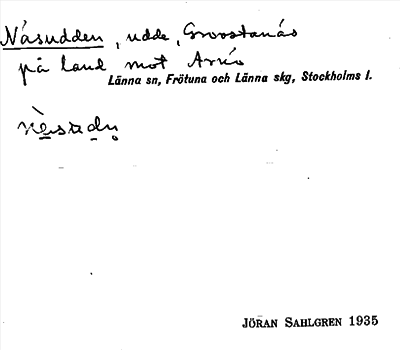 Näsudden, udde,
på land mot Arnö
Länna sn, Frötuna och Länna skg, Stockholms l.
JÖRAN SAHLGREN 1935